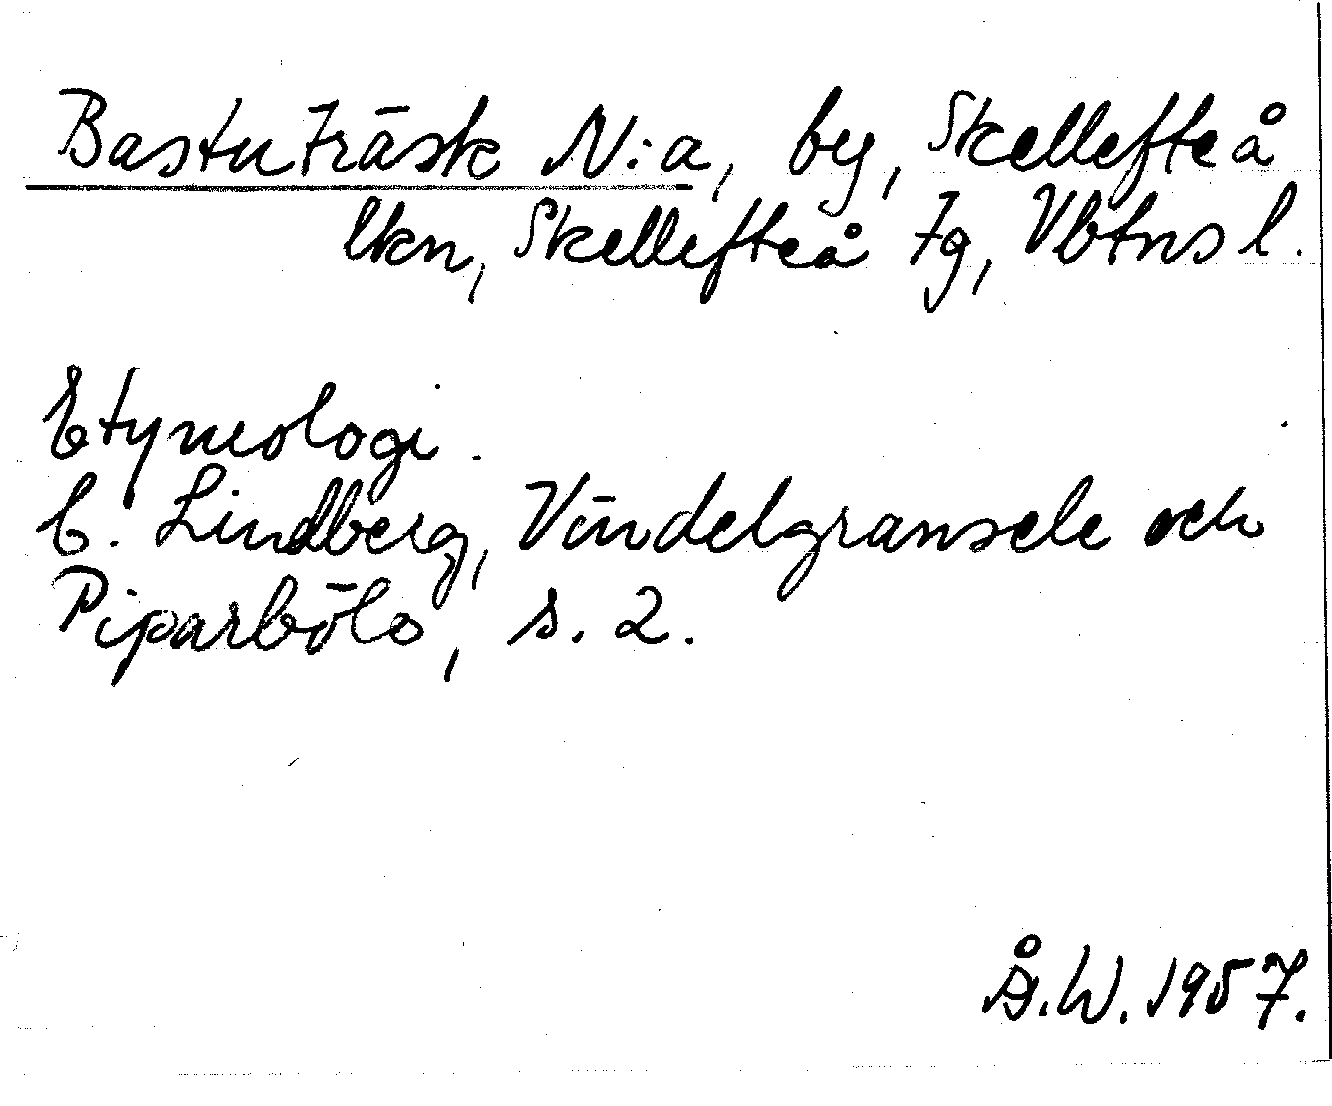 Bastuträsk N:a, by, Skellefteå
lkn, Skellefteå tg, Vbtns l.
Etymologi.
C. Lindberg, Vindelgransele och
Piparböle, s. 2.
Å.W. 1957.